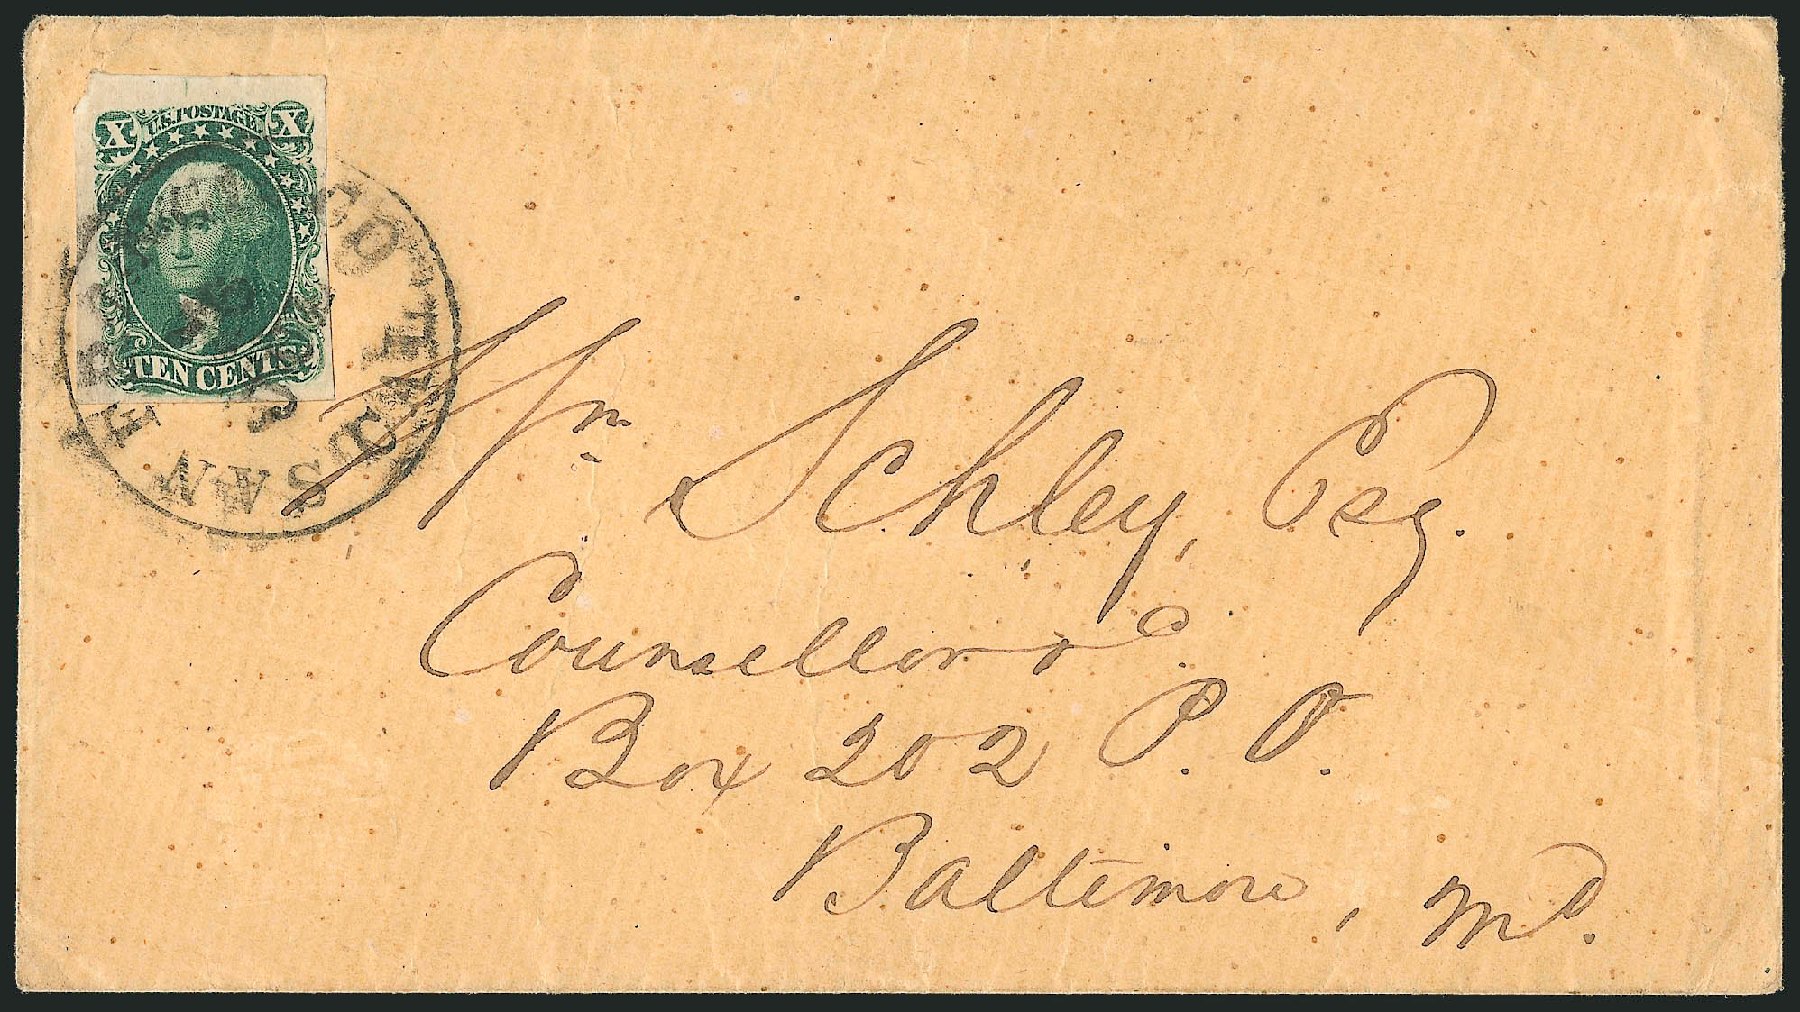 X U.S. POSTAGE X
TEN CENTS
SAN FRANCISCO
Wm Schley, Esq.
Counsellor &c.
Box 202 P. O.
Baltimore, Md.